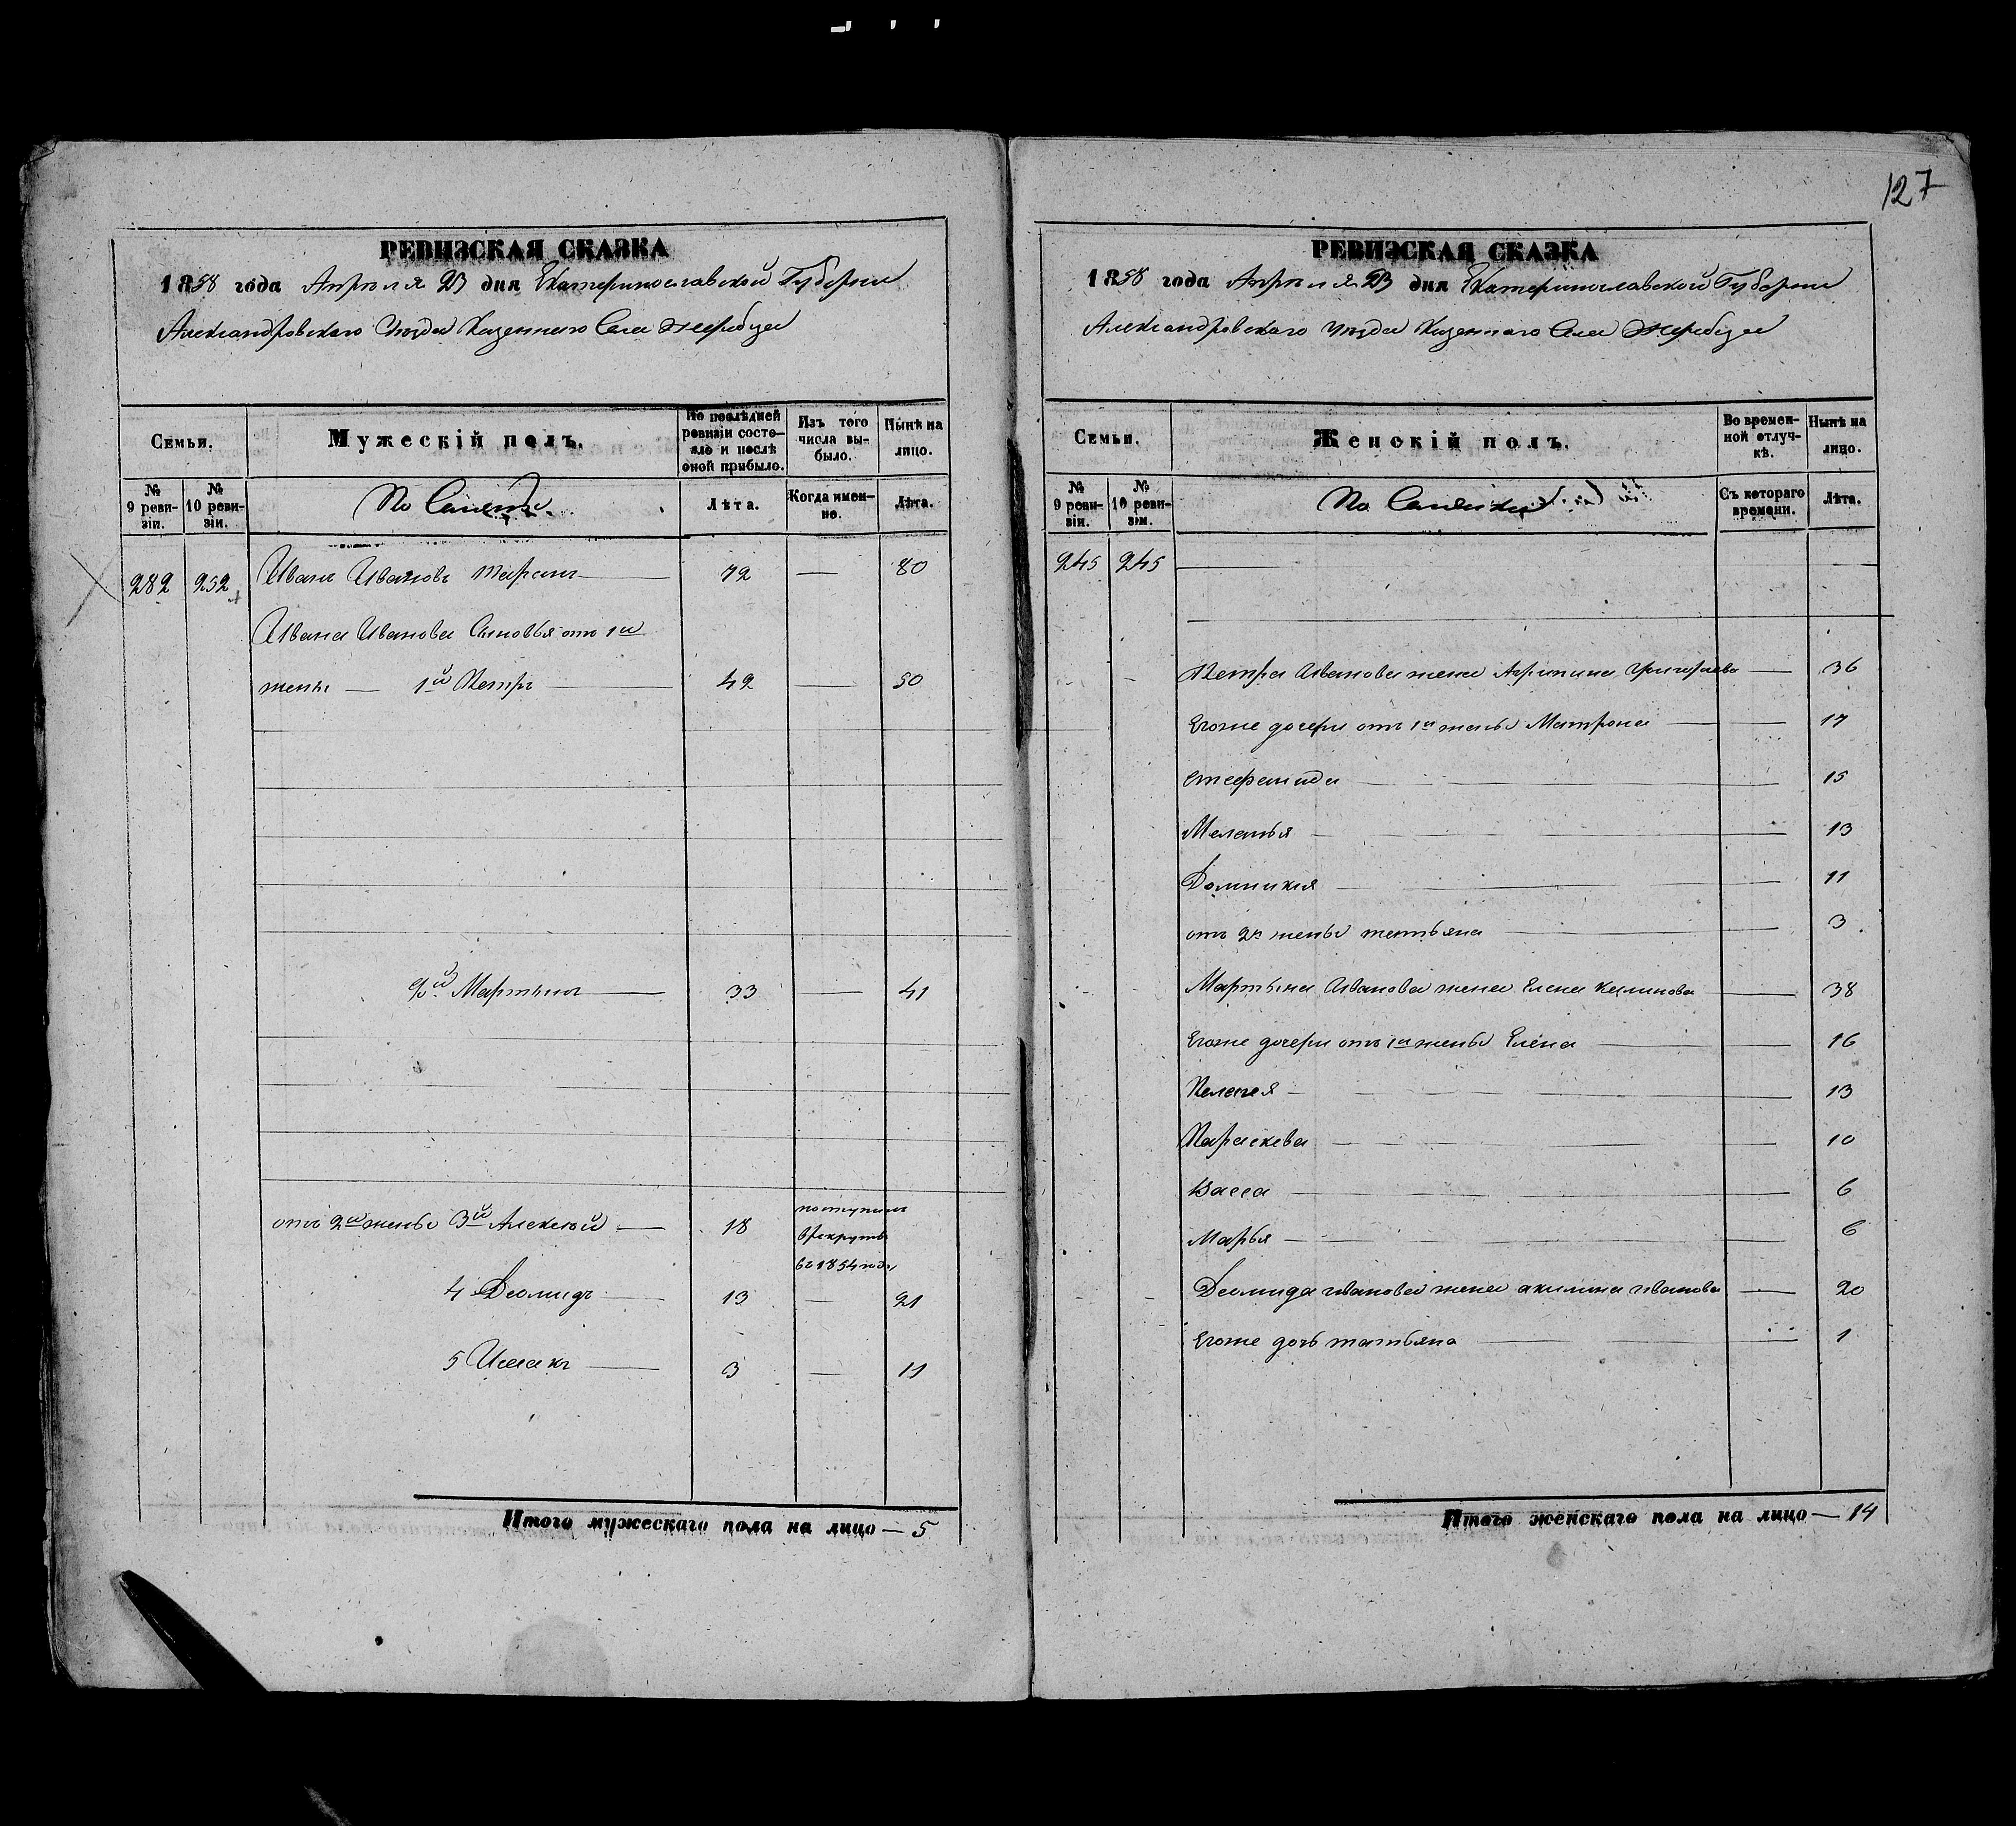 127
РЕВИЗСКАЯ СКАЗКА
1858 года Апреля 23 дня Екатеринославской Губернии
Александровскаго Уезда Казеннаго Села Жеребца
Семьи.
Мужескій полъ.
По послѣдней ревизіи состояло и послѣ оной прибыло.
Изъ того числа выбыло.
Нынѣ на лицо.
№ 9 ревизіи.
№ 10 ревизіи.
Лѣта.
Когда именно.
Лѣта.
282 252 Иванъ Ивановъ Таранъ 72 — 80
Ивана Иванова Сыновья отъ 1й
жены — 1й Петръ 42 — 50
2й Мартынъ 33 — 41
отъ 2й жены 3й Алексѣй 18 поступилъ
в рекруты
въ 1854 году
4 Деомидъ 13 — 21
5 Исакъ 3 — 11
Итого мужескаго пола на лицо — 5
РЕВИЗСКАЯ СКАЗКА
1858 года Апреля 23 дня Екатеринославской Губернии
Александровскаго Уезда Казеннаго Села Жеребца
Семьи.
Женскій полъ.
Во временной отлучкѣ.
Нынѣ на лицо.
№ 9 ревизіи.
№ 10 ревизіи.
Съ котораго времени.
Лѣта.
245 245 — —
Петра Иванова жена Агрипина Григориева — 36
Егоже дочери отъ 1й жены Матрона — 17
Стефанида — 15
Меланья — 13
Домникия — 11
отъ 2й жены Тетьяна — 3
Мартына Иванова жена Елена Калинова — 38
Егоже дочери отъ 1й жены Елена — 16
Пелагея — 13
Параскева — 10
Васса — 6
Марья — 6
Деомида Иванова жена Акилина Иванова — 20
Егоже дочь Татьяна — 1
Итого женскаго пола на лицо — 14